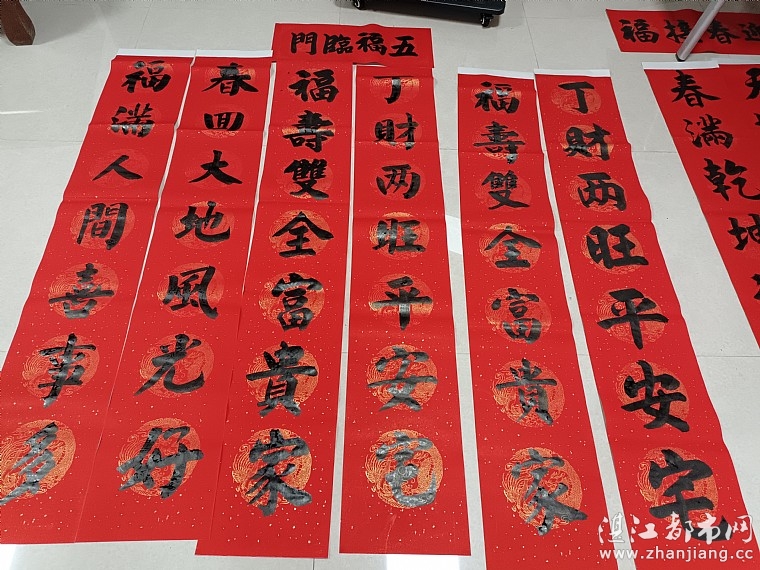 五福臨門
迎春接福
春满乾坤
丁財两旺平安宅
福壽雙全富貴家
丁財两旺平安宅
福壽雙全富貴家
春回大地風光好
福满人間喜事多
湛江都市网
www.zhanjiang.cc